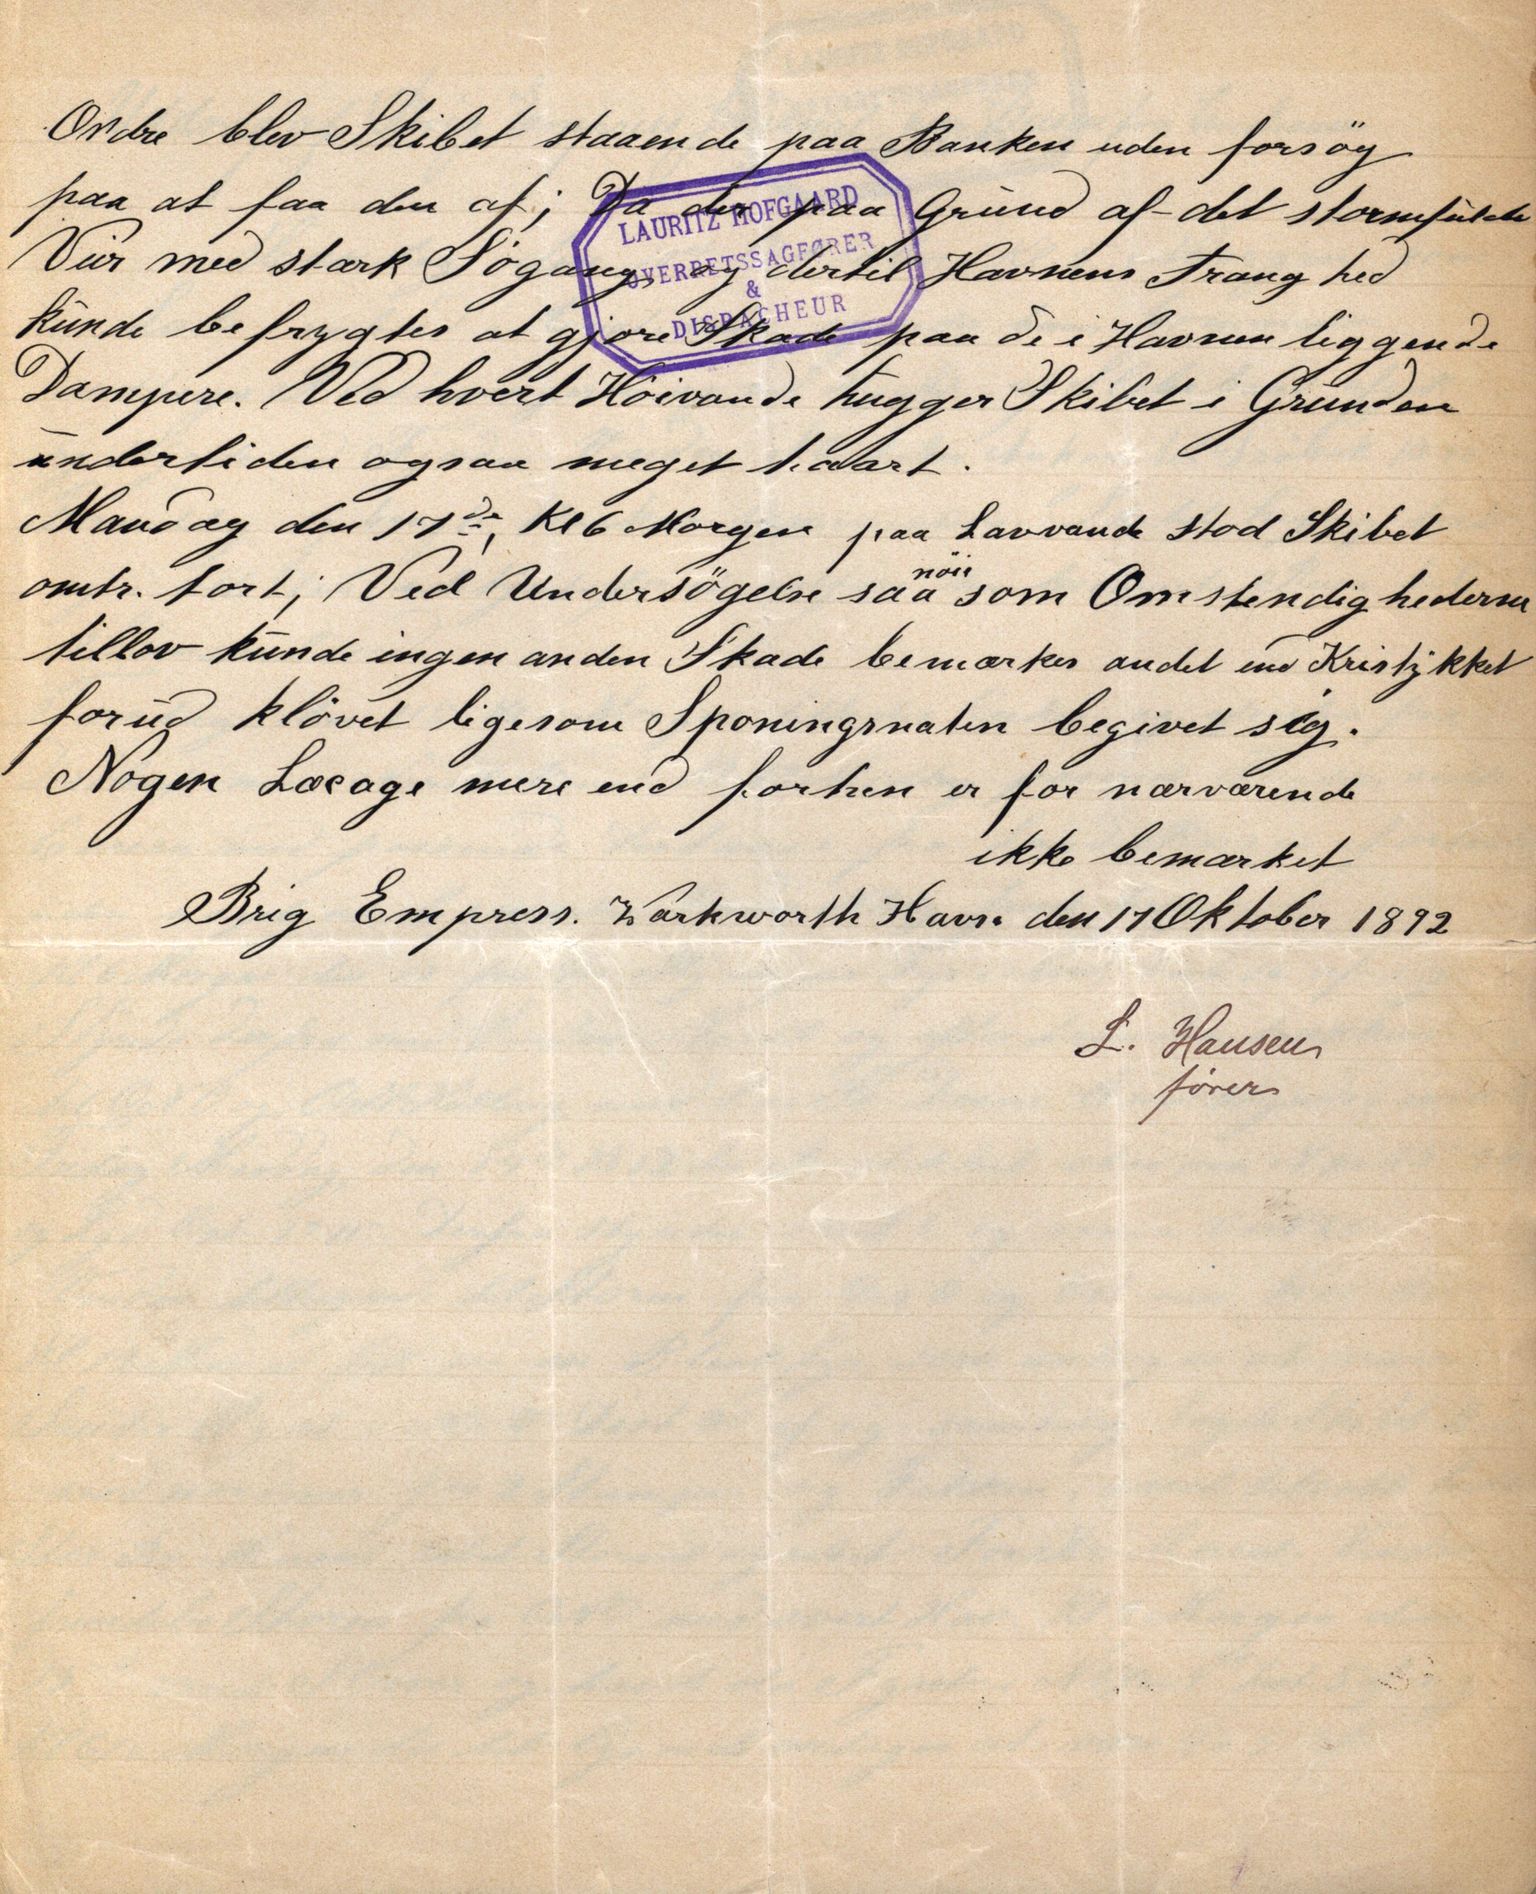 Ordre blev Skibet staaende paa Banken uden forsög
paa at faa den af; Da der paa Grund af det stormfulde
Veir med stærk Søgang, og dertil Havnens Trang hed
kunde befrygtes at gjøre Skade paa de i Havnen liggende
Dampere. Ved hvert Høivande hugger Skibet i Grunden
undertiden ogsaa meget haart.
LAURITZ HOFGAARD
OVERRETSSAGFØRER
&
DISPACHEUR
Mandag den 17de, Kl 6 Morgen paa Lavvande stod Skibet
omtr. tört; Ved Undersögelse saa nöie som Omstendighederne
tillov kunde ingen anden Skade bemærkes andet end Kristykket
forud klövet ligesom Sponingsnaten begivet sig.
Nogen Læcage mere end forhen er for nærværende
ikke bemærket
Brig Empress. Warkworth Havn den 17 Oktober 1892
L. Hansen
fører